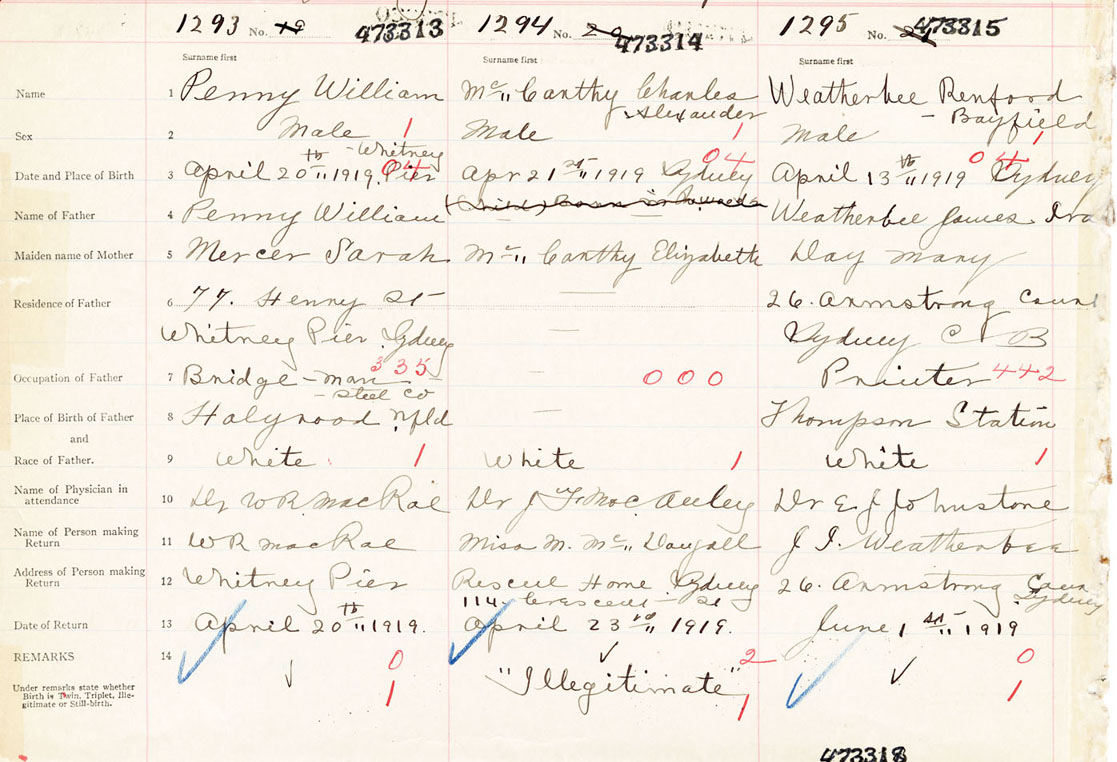 1293 No. 19 473313
1294 No. 20 473314
1295 No. 21 473315
Surname first
Surname first
Surname first
Name 1 Penny William
Mc" Carthy Charles
Alexander
Weatherbee Renford
- Bayfield
Sex 2 Male 1
Male 1
Male 1
- Whitney
Date and Place of Birth 3 April 20th" 1919. Pier 04
Apr 21st" 1919 Sydney 04
April 13th" 1919 Sydney 04
Name of Father 4 Penny William
Weatherbee James Ira
Maiden name of Mother 5 Mercer Sarah
Mc" Carthy Elizabeth
Day Mary
Residence of Father 6 77. Henry St
Whitney Pier Sydney
—
—
26. Armstrong Court
Sydney C B
Occupation of Father 7 Bridge - man 335
- Steel Co
000
Printer 442
Place of Birth of Father 8 Holyrood Nfld
—
Thompson Station
and
Race of Father. 9 White 1
White 1
White 1
Name of Physician in
attendance 10 Dr W R MacRae
Dr J F MacAuley
Dr E J Johnstone
Name of Person making
Return 11 W R MacRae
Miss M. Mc" Dougall
J I. Weatherbee
Address of Person making
Return 12 Whitney Pier
Rescue Home Sydney
114 - Crescent - St
26. Armstrong Court
Sydney
Date of Return 13 April 20th" 1919.
April 23rd" 1919.
June 1st" 1919
REMARKS 14
Under remarks state whether
Birth is Twin, Triplet, Ille-
gitimate or Still-birth.
0
1
"Illegitimate" 2
1
0
1
473318